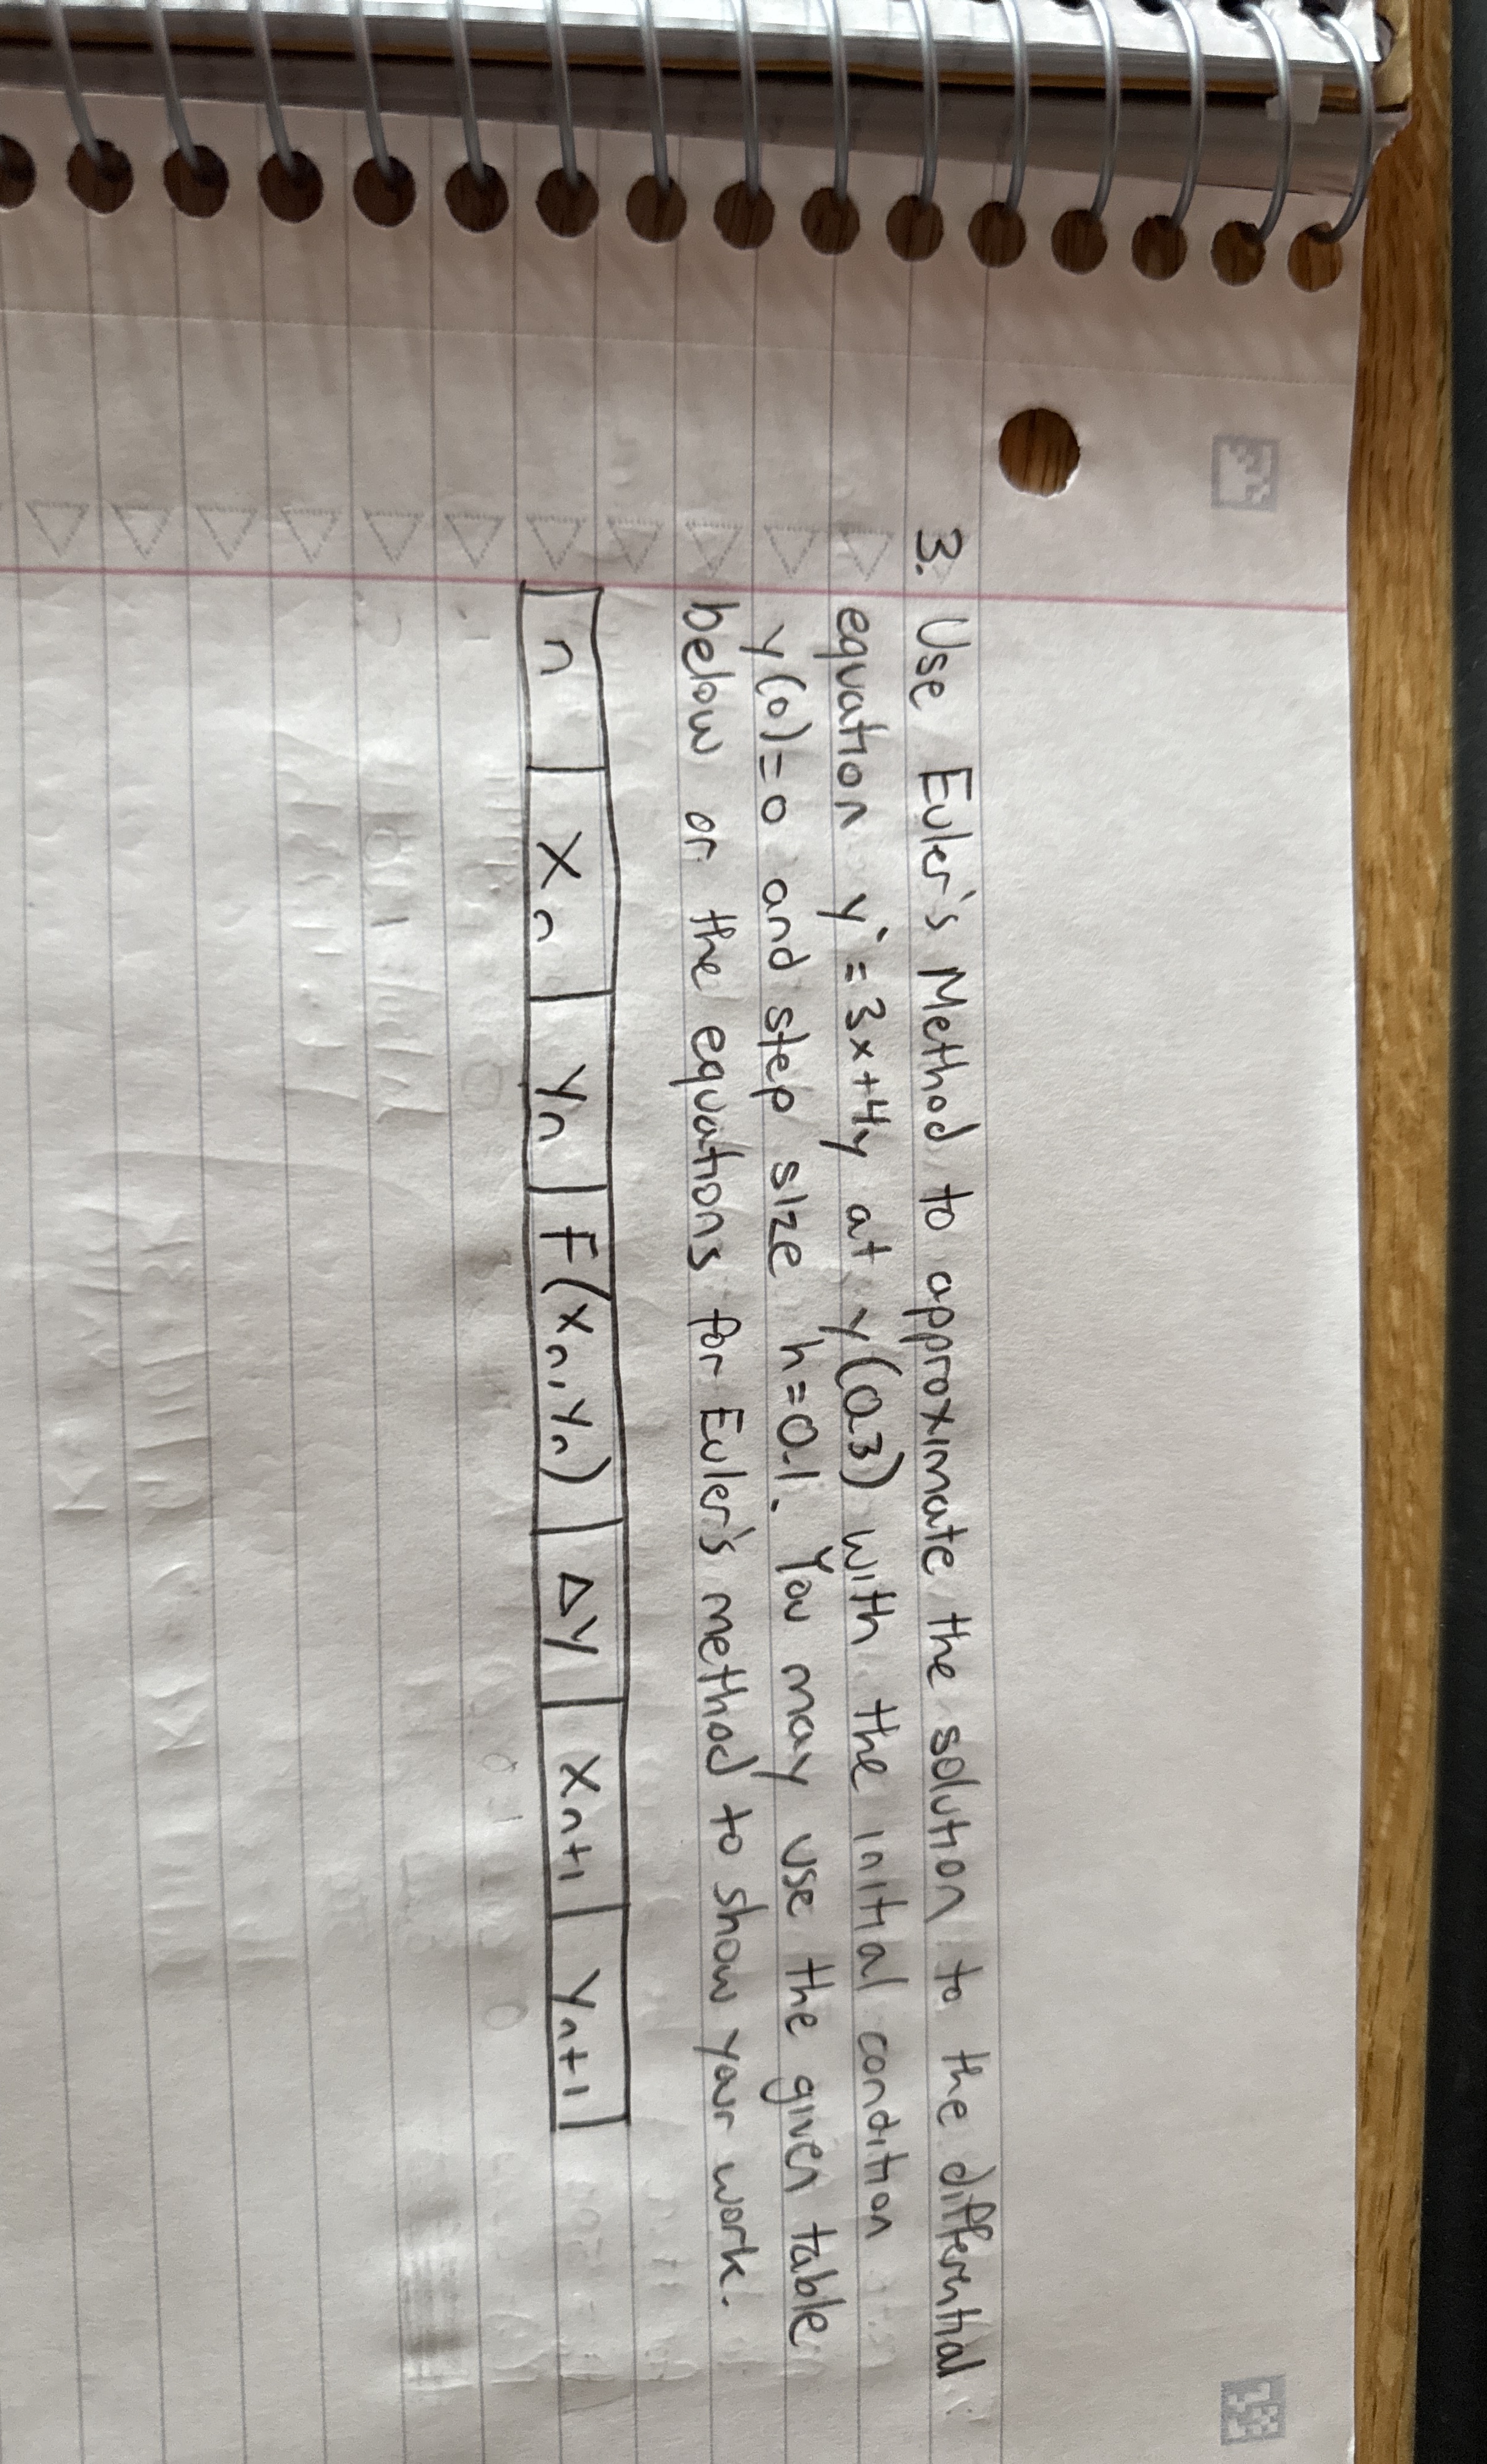 3. Use Euler's Method to approximate the solution to the differential
equation y' = 3x+4y at y(0.3) with the initial condition
y(0)=0 and step size h=0.1. You may use the given table
below or the equations for Euler's method to show your work.
n | xₙ | yₙ | F(xₙ, yₙ) | Δy | xₙ₊₁ | yₙ₊₁